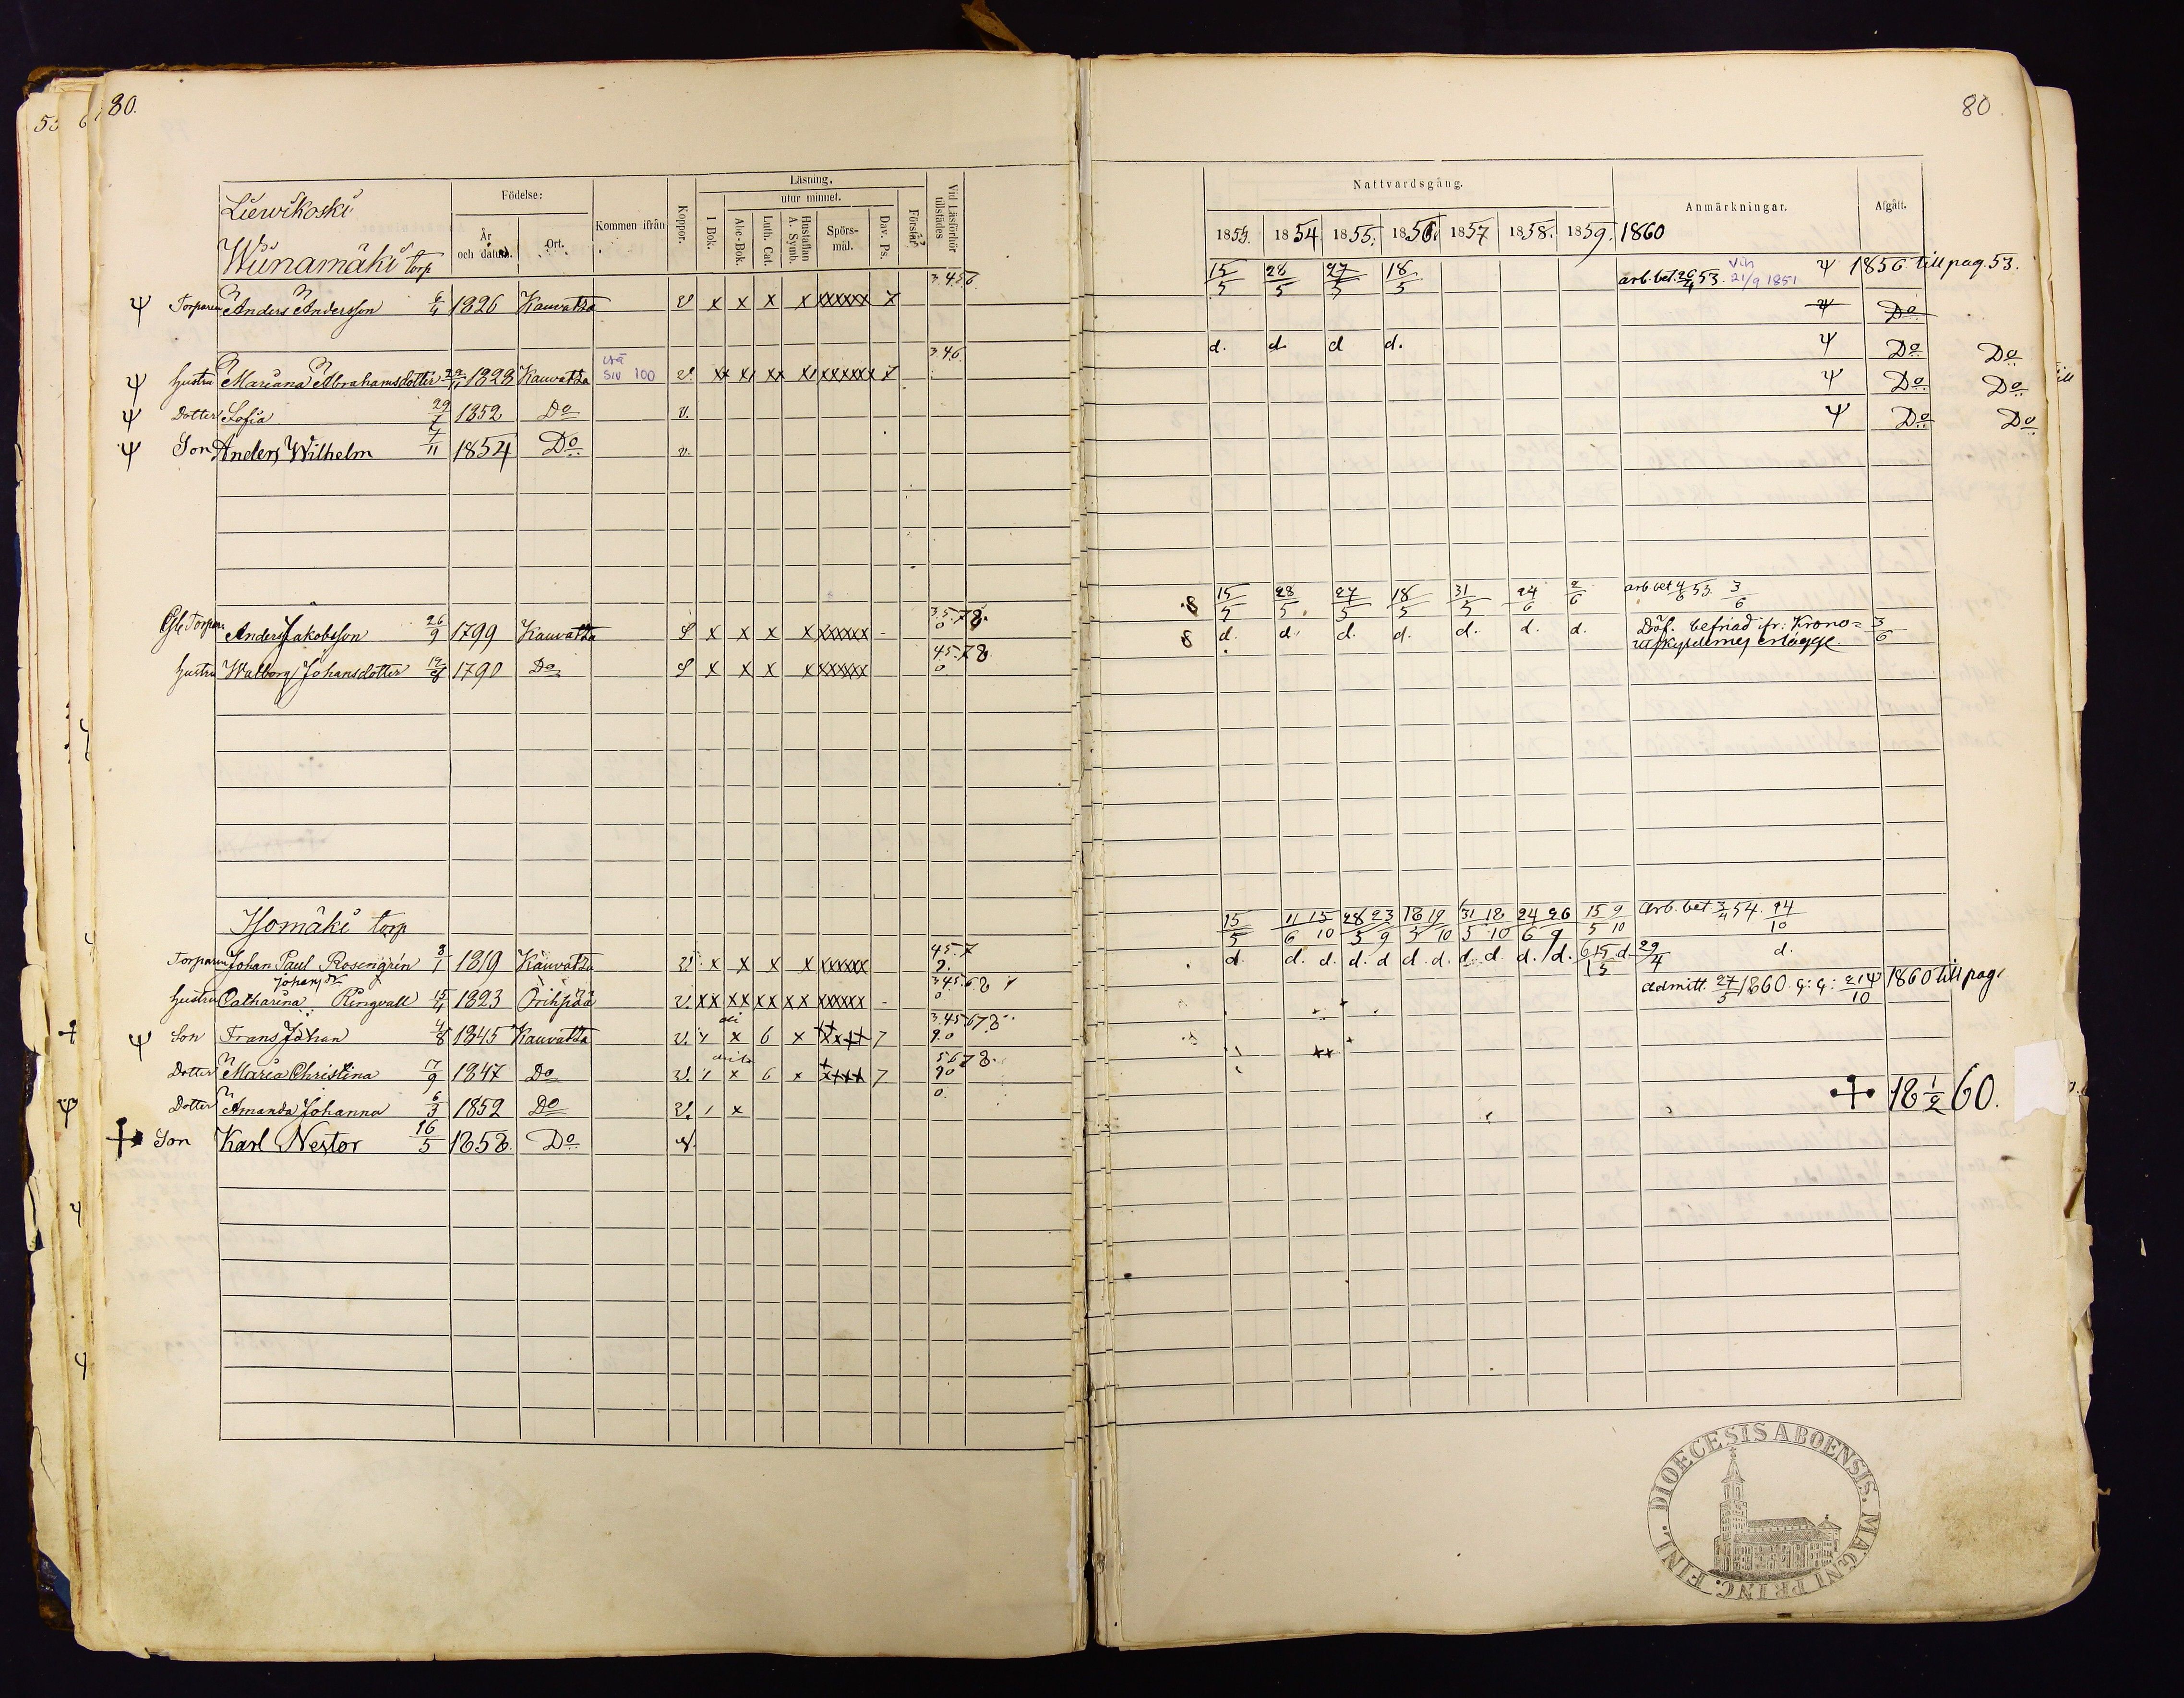 80.
80.
Liewikoski
Födelse:
År och datum.
Ort.
Kommen ifrån
Koppor.
Läsning,
I Bok.
utur minnet.
Abc-Bok.
Luth. Cat.
Hustaflan A. Symb.
Spörs-mål.
Dav. Ps.
Förstår
Vid Läsförhör tillstädes
Nattvardsgång.
1853. 1854. 1855. 1856. 1857 1858. 1859. 1860
Anmärkningar.
Afgått.
Wiinamäki torp
Ψ Torparen Anders Andersson 1826 Kauvatsa v x x x x xxxxxx x 3.4.5.6. 15/5 28/5 27/5 18/5 arb. bet. 26/4 53. vih 21/9 1851 Ψ 1856 till pag. 53.
Ψ Do
Ψ Hustru Mariana Abrahamsdotter 1828 Kauvatsa siv 100 v. xx x xx x xxxxxx x 3.4.6. d. d. d d. Ψ Do Do
Ψ Dotter Sofia 29/7 1852 Do v. Ψ Do Do
Ψ Son Anders Wilhelm 7/11 1854 Do v. Ψ Do Do
Torparen Anders Jakobsson 26/9 1799 Kauvatsa x x x x xxxxxx - 3.5.7.8. 0 8 15/5 28/5 27/5 18/5 31/5 24/6 2/6 arb bet 4/6 53. 3/6
Hustru Walborg Johansdotter 1790 Do x x x x xxxxxx 4.5.7.8 0. 8 d. d. d. d. d. d. d. Döf. befriad ifr: Krono= 3/6
Isomäki torp
15/5 11/6 15/10 28/5 23/9 18/5 19/10 31/5 18/10 24/6 26/9 15/5 9/10 arb. bet. 3/4 54. 24/10
Torparen Johan Paul Rosengrin 8/1 1819 Kauvatsa v. x x x x xxxxxx 4.5.7 9. d. d. d. d. d d. d. d. d. d. d. 29/4 d.
Johans dr
Hustru Catharina Ringvall 15/4 1823 Oripää v. xx xx xx xx xxxxxx - 3.4.5.6.8 0 admitt. 27/5 1860. 21/10 Ψ 1860 till pag.
Ψ Son Frans Johan 4/8 1845 Kauvatsa v. x 6 x 7 3.4.5.6.7.8. 9.0
Dotter Maria Christina 17/9 1847 Do v. x 6 x 7 5.6.7.8. 9.0
Dotter Amanda Johanna 6/3 1852 Do v. x 0.
Son Karl Nestor 16/5 1858. Do v. 18 1/2 60.
DIOECESIS ABOENSIS. MAGNI PRINC. FINL.